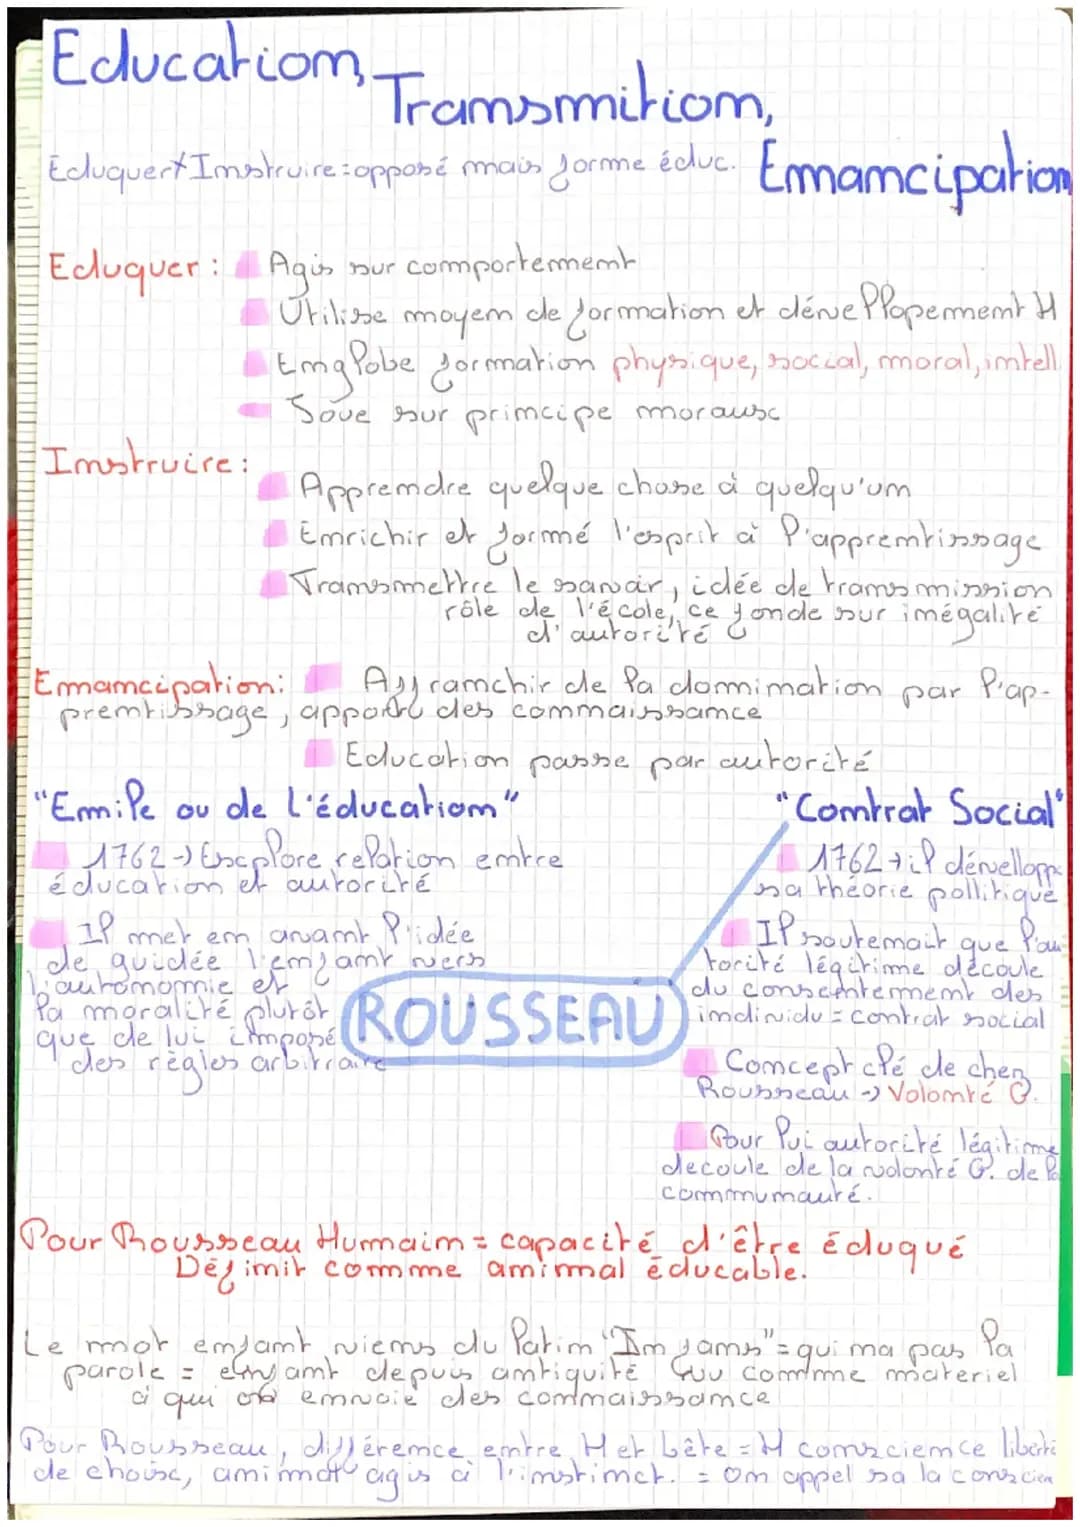 Education,
Transmition,
Emmancipation
Eduquer≠Instruire=opposé mais forme éduc.
Eduquer :
Agis sur comportement
Utilise moyen de formation et dévellopement H
Englobe formation physique, social, moral, intell
Joue sur principe moraux
Instruire :
Apprendre quelque chose à quelqu'un
Enrichir et formé l'esprit à l'apprentissage
Transmettre le savoir, idée de transmission
rôle de l'école, ce fonde sur inégalité
d'autorité
Emmancipation: Affranchir de la domination par l'ap-
prentissage, apporte des connaissance
Education passe par autorité
"Emile ou de l'éducation"
1762 -> Explore relation entre
éducation et autorité
Il met en avant l'idée
de guidée l'enfant vers
l'autonomie et
la moralité plutôt
que de lui imposé
des règles arbitraire
ROUSSEAU
"Contrat Social"
1762 -> il dévellopp
sa théorie pollitique
Il soutenait que l'au-
torité légitime découle
du consentement des
individu = contrat social
Concept clé de chez
Rousseau -> Volonté G.
Pour lui autorité légitime
decoule de la volonté G. de la
communauté.
Pour Rousseau Humain = capacité d'être éduqué
Définit comme animal éducable.
Le mot enfant viens du latin "In fans" = qui ma pas la
parole = enfant depuis antiquité vu comme materiel
à qui on envoie des connaissance
Pour Rousseau, différence entre H et bête = H conscience liberté
de choix, animal agis à l'instinct. = on appel sa la conscien